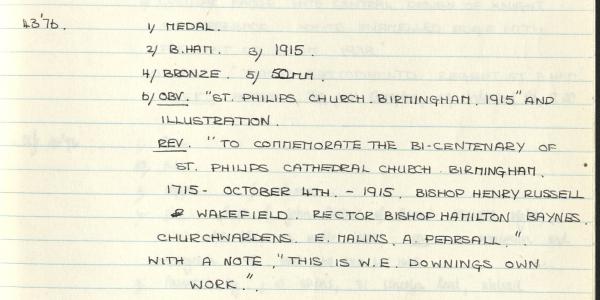 43'76. 1/ MEDAL.
2/ B.HAM. 3/ 1915.
4/ BRONZE. 5/ 50mm.
6/ OBV. "ST. PHILIPS CHURCH. BIRMINGHAM. 1915" AND
ILLUSTRATION.
REV. "TO COMMEMORATE THE BI-CENTENARY OF
ST. PHILIPS CATHEDRAL CHURCH BIRMINGHAM.
1715 - OCTOBER 4TH. - 1915. BISHOP HENRY RUSSELL
WAKEFIELD. RECTOR BISHOP HAMILTON BAYNES.
CHURCHWARDENS. E. MALINS. A. PEARSALL."
WITH A NOTE, "THIS IS W.E. DOWNINGS OWN
WORK.".